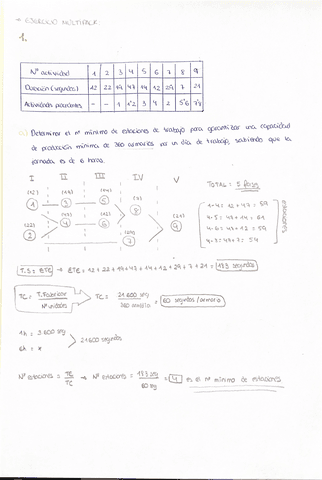 * EJERCICIO MULTIPACK:
1.
Nº actividad 1 2 3 4 5 6 7 8 9
Duración (segundos) 12 22 19 47 14 12 29 7 21
Actividades precedentes - - 1 1*2 3 4 2 5*6 7*8
a) Determinar el nº mínimo de estaciones de trabajo para garantizar una capacidad
de producción mínima de 360 armarios por un día de trabajo, sabiendo que la
jornada es de 6 horas.
I II III IV V
TOTAL: 5 fases
(12) (19) (14)
1 3 5
(22) (47) (12)
2 4 6
(7)
8
(29)
7
(21)
9
1-4 = 12 + 47 = 59
4-5 = 47 + 14 = 61
4-6 = 47 + 12 = 59
4-7 = 47 + 7 = 54
T.S = ETC → ETC = 12 + 22 + 19 + 47 + 14 + 12 + 29 + 7 + 21 = 183 segundos
TC = T. Fabricar / Nº unidades TC = 21600 seg / 360 = 60 segundos/armario
1h = 3600 seg
6h = x
21600 segundos
Nº estaciones = TS / TC → Nº estaciones = 183 seg / 60 seg = 4 es el nº mínimo de estaciones